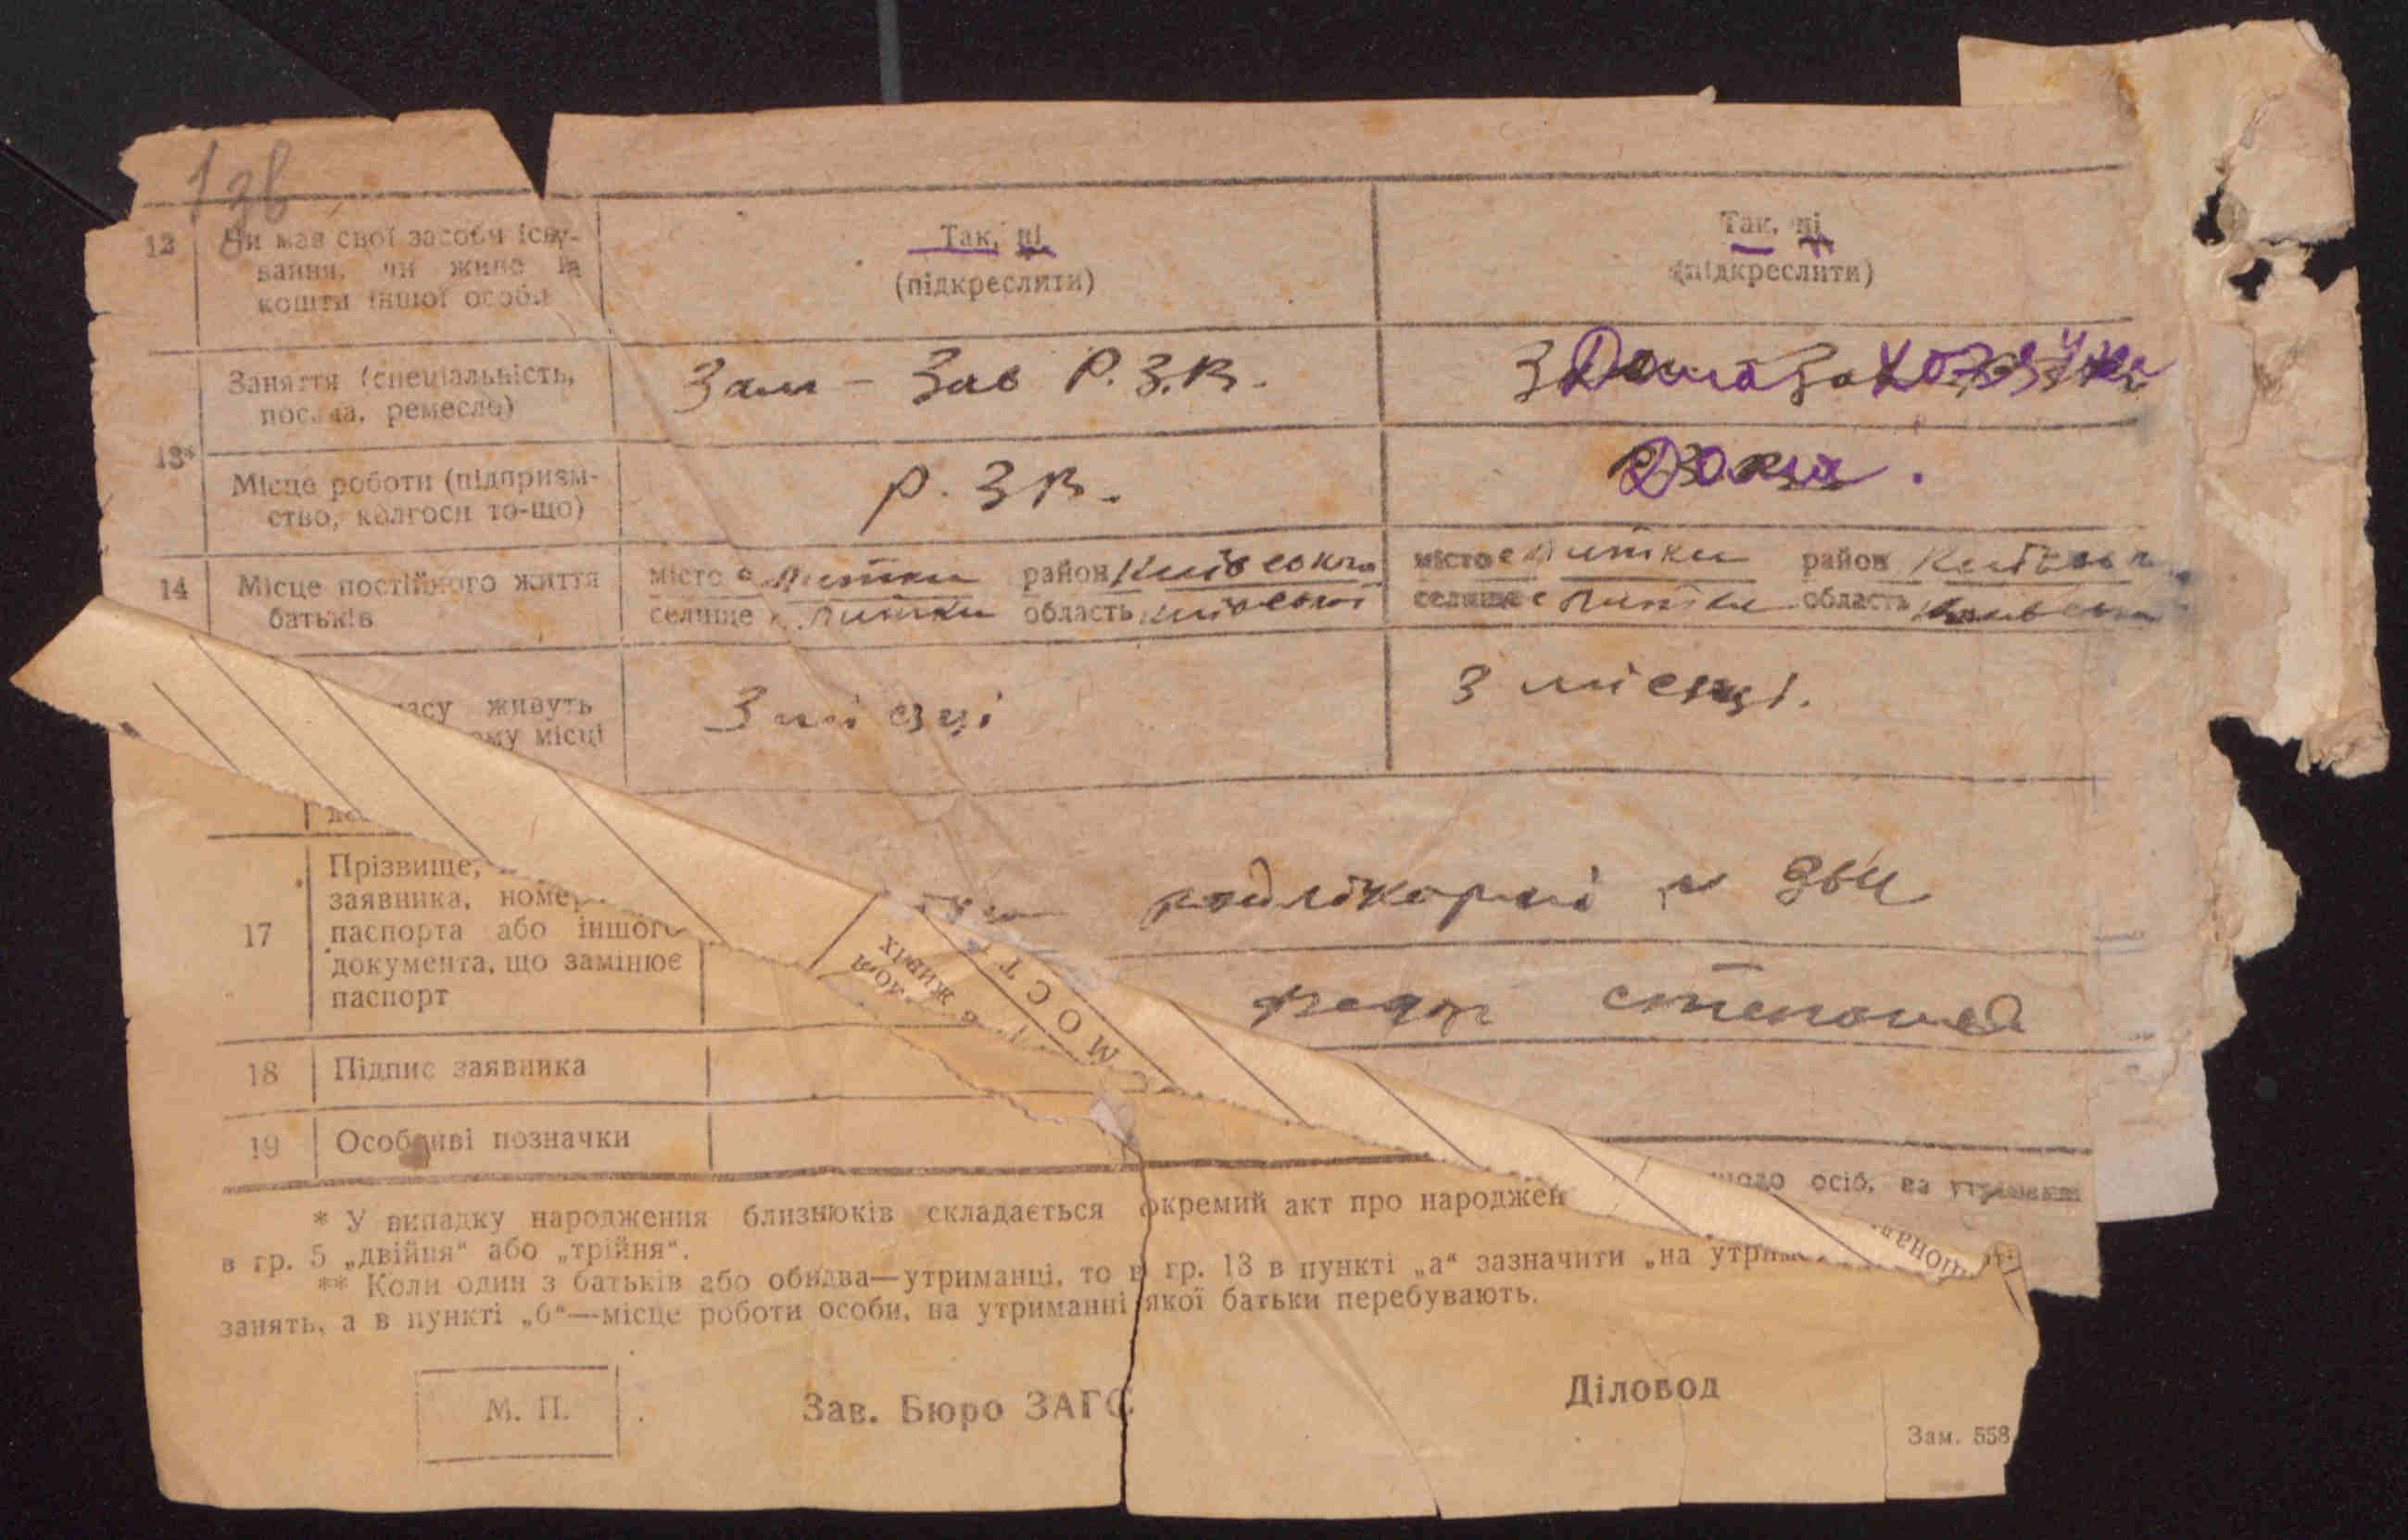 138
12 Чи має свої засоби існу-
вання, чи живе на
кошти іншої особи
Так, ні
(підкреслити)
Так, ні
(підкреслити)
13*
Заняття (спеціальність,
посада, ремесло)
Зам - Зав Р.З.В.
Домахозяйка
Місце роботи (підприєм-
ство, колгосп то-що)
Р. З В.
Дома.
14 Місце постійного життя
батьків
місто с Литки район Київська
селище с. Литки область Київської
місто с Литки район Київська
селище с Литки область Київська
часу живуть
ому місці
3 місяці
3 місяці.
17 Прізвище,
заявника, номер
паспорта або іншого
документа, що замінює
паспорт
18 Підпис заявника
19 Особливі позначки
МОСТ
живих
* У випадку народження близнюків складається окремий акт про народжен
щодо осіб, на утриманні
в гр. 5 „двійня“ або „трійня“.
** Коли один з батьків або обидва—утриманці, то в гр. 13 в пункті „а“ зазначити „на утрим
занять, а в пункті „б“—місце роботи особи, на утриманні якої батьки перебувають.
М. П.
Зав. Бюро ЗАГС
Діловод
Зам. 558